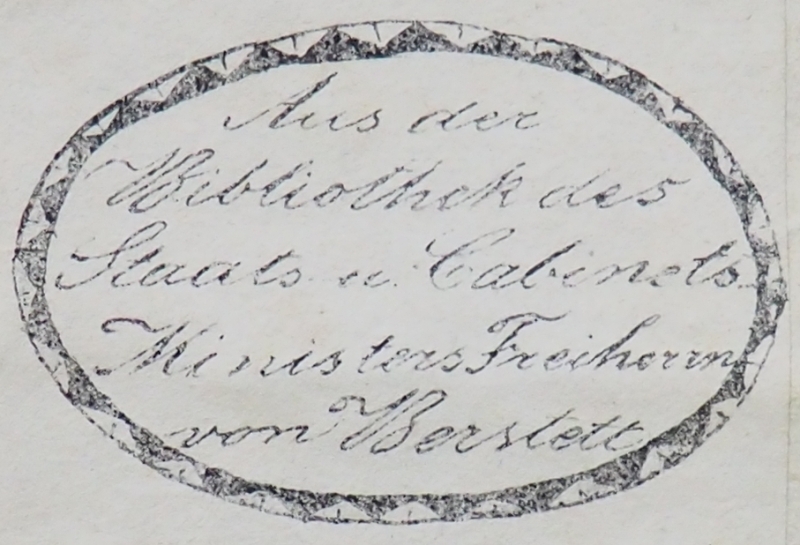 Aus der
Bibliothek des
Staats u. Cabinets
Ministers Freiherrn
von Berstett